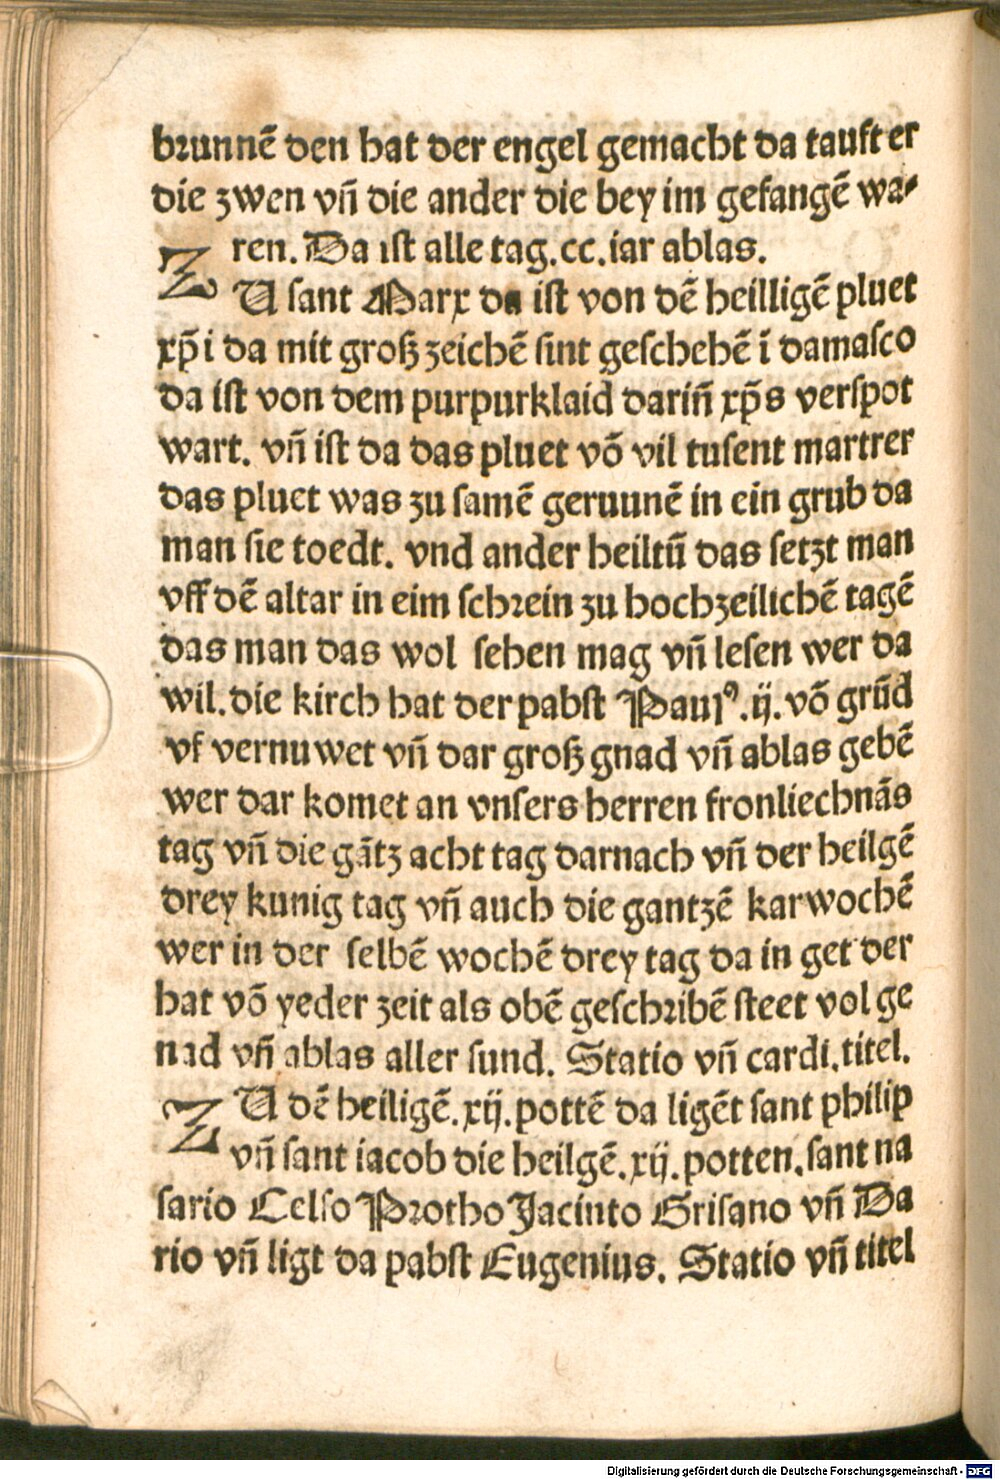 brunnē den hat der engel gemacht da tauft er
die zwen vn̄ die ander die bey im gefangē wa⸗
ren. Da ist alle tag. cc. iar ablas.
ZU sant Marx da ist von dē heilligē pluet
xp̄i da mit groß zeichē sint geschehē ī damasco
da ist von dem purpurklaid darin̄ xp̄s verspot
wart. vn̄ ist da das pluet vō vil tusent martrer
das pluet was zu samē geruunē in ein grub da
man sie toedt. vnd ander heiltū das setzt man
vff dē altar in eim schrein zu hochzeilichē tagē
das man das wol sehen mag vn̄ lesen wer da
wil. die kirch hat der pabst Paulꝰ .ij. vō grūd
vf vernuwet vn̄ dar groß gnad vn̄ ablas gebē
wer dar komet an vnsers herren fronliechnās
tag vn̄ die gātz acht tag darnach vn̄ der heilgē
drey kunig tag vn̄ auch die gantzē karwochē
wer in der selbē wochē drey tag da in get der
hat vō yeder zeit als obē geschribē steet vol ge
nad vn̄ ablas aller sund. Statio vn̄ cardi. titel.
ZU dē heiligē. xij. pottē da ligēt sant philip
vn̄ sant iacob die heilgē. xij. potten. sant na
sario Celso Protho Jacinto Grisano vn̄ Da
rio vn̄ ligt da pabst Eugenius. Statio vn̄ titel
Digitalisierung gefördert durch die Deutsche Forschungsgemeinschaft - DFG